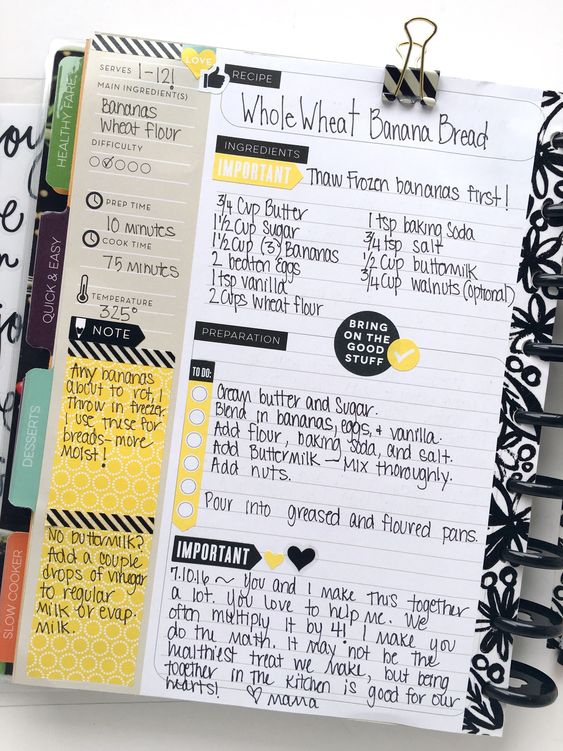 LOVE
SERVES 1-12!
MAIN INGREDIENT(S)
Bananas
Wheat flour
DIFFICULTY
PREP TIME
10 minutes
COOK TIME
75 minutes
TEMPERATURE
325°
NOTE
Any bananas
about to rot, I
throw in freezer.
I use these for
breads - more
moist!
No buttermilk?
Add a couple
drops of vinegar
to regular
milk or evap.
milk.
HEALTHY FARE
QUICK & EASY
DESSERTS
SLOW COOKER
RECIPE
Whole Wheat Banana Bread
INGREDIENTS
IMPORTANT Thaw Frozen bananas first!
3/4 Cup Butter
1 1/2 Cup Sugar
1 1/2 Cup (3) Bananas
2 beaten eggs
1 tsp vanilla
2 Cups Wheat flour
1 tsp baking Soda
3/4 tsp salt
1/2 Cup buttermilk
3/4 Cup walnuts (optional)
PREPARATION
BRING ON
THE GOOD
STUFF
TO DO:
Cream butter and Sugar.
Blend in bananas, eggs, + vanilla.
Add flour, baking Soda, and salt.
Add Buttermilk — Mix thoroughly.
Add nuts.
Pour into greased and floured pans.
IMPORTANT
7.10.16 ~ You and I make this together
a lot. You love to help me. We
often multiply it by 4! I make you
do the math. It may not be the
healthiest treat we make, but being
together in the kitchen is good for our
hearts! ♡ Mama